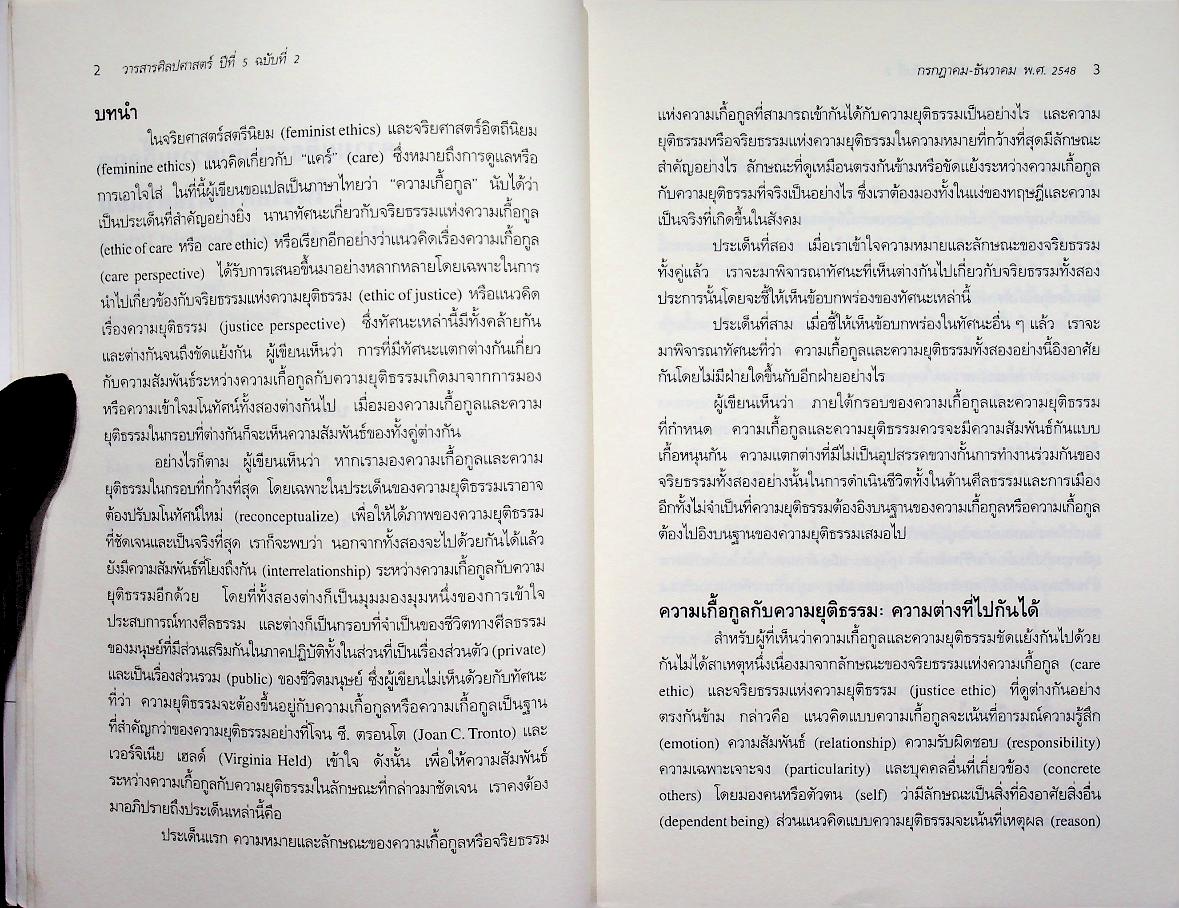 2 วารสารศิลปศาสตร์ ปีที่ 5 ฉบับที่ 2
บทนำ
ในจริยศาสตร์สตรีนิยม (feminist ethics) และจริยศาสตร์อิตถีนิยม
(feminine ethics) แนวคิดเกี่ยวกับ “แคร์” (care) ซึ่งหมายถึงการดูแลหรือ
การเอาใจใส่ ในที่นี้ผู้เขียนขอแปลเป็นภาษาไทยว่า “ความเกื้อกูล” นับได้ว่า
เป็นประเด็นที่สำคัญอย่างยิ่ง นานาทัศนะเกี่ยวกับจริยธรรมแห่งความเกื้อกูล
(ethic of care หรือ care ethic) หรือเรียกอีกอย่างว่าแนวคิดเรื่องความเกื้อกูล
(care perspective) ได้รับการเสนอขึ้นมาอย่างหลากหลายโดยเฉพาะในการ
นำไปเกี่ยวข้องกับจริยธรรมแห่งความยุติธรรม (ethic of justice) หรือแนวคิด
เรื่องความยุติธรรม (justice perspective) ซึ่งทัศนะเหล่านี้มีทั้งคล้ายกัน
และต่างกันจนถึงขัดแย้งกัน ผู้เขียนเห็นว่า การที่มีทัศนะแตกต่างกันเกี่ยว
กับความสัมพันธ์ระหว่างความเกื้อกูลกับความยุติธรรมเกิดมาจากการมอง
หรือความเข้าใจมโนทัศน์ทั้งสองต่างกันไป เมื่อมองความเกื้อกูลและความ
ยุติธรรมในกรอบที่ต่างกันก็จะเห็นความสัมพันธ์ของทั้งคู่ต่างกัน
อย่างไรก็ตาม ผู้เขียนเห็นว่า หากเรามองความเกื้อกูลและความ
ยุติธรรมในกรอบที่กว้างที่สุด โดยเฉพาะในประเด็นของความยุติธรรมเราอาจ
ต้องปรับมโนทัศน์ใหม่ (reconceptualize) เพื่อให้ได้ภาพของความยุติธรรม
ที่ชัดเจนและเป็นจริงที่สุด เราก็จะพบว่า นอกจากทั้งสองจะไปด้วยกันได้แล้ว
ยังมีความสัมพันธ์ที่โยงถึงกัน (interrelationship) ระหว่างความเกื้อกูลกับความ
ยุติธรรมอีกด้วย โดยที่ทั้งสองต่างก็เป็นมุมมองมุมหนึ่งของการเข้าใจ
ประสบการณ์ทางศีลธรรม และต่างก็เป็นกรอบที่จำเป็นของชีวิตทางศีลธรรม
ของมนุษย์ที่มีส่วนเสริมกันในภาคปฏิบัติทั้งในส่วนที่เป็นเรื่องส่วนตัว (private)
และเป็นเรื่องส่วนรวม (public) ของชีวิตมนุษย์ ซึ่งผู้เขียนไม่เห็นด้วยกับทัศนะ
ที่ว่า ความยุติธรรมจะต้องขึ้นอยู่กับความเกื้อกูลหรือความเกื้อกูลเป็นฐาน
ที่สำคัญกว่าของความยุติธรรมอย่างที่โจน ซี. ตรอนโต (Joan C. Tronto) และ
เวอร์จิเนีย เฮลด์ (Virginia Held) เข้าใจ ดังนั้น เพื่อให้ความสัมพันธ์
ระหว่างความเกื้อกูลกับความยุติธรรมในลักษณะที่กล่าวมาชัดเจน เราคงต้อง
มาอภิปรายถึงประเด็นเหล่านี้คือ
ประเด็นแรก ความหมายและลักษณะของความเกื้อกูลหรือจริยธรรม
กรกฎาคม-ธันวาคม พ.ศ. 2548 3
แห่งความเกื้อกูลที่สามารถเข้ากันได้กับความยุติธรรมเป็นอย่างไร และความ
ยุติธรรมหรือจริยธรรมแห่งความยุติธรรมในความหมายที่กว้างที่สุดมีลักษณะ
สำคัญอย่างไร ลักษณะที่ดูเหมือนตรงกันข้ามหรือขัดแย้งระหว่างความเกื้อกูล
กับความยุติธรรมที่จริงเป็นอย่างไร ซึ่งเราต้องมองทั้งในแง่ของทฤษฎีและความ
เป็นจริงที่เกิดขึ้นในสังคม
ประเด็นที่สอง เมื่อเราเข้าใจความหมายและลักษณะของจริยธรรม
ทั้งคู่แล้ว เราจะมาพิจารณาทัศนะที่เห็นต่างกันไปเกี่ยวกับจริยธรรมทั้งสอง
ประการนั้นโดยจะชี้ให้เห็นข้อบกพร่องของทัศนะเหล่านี้
ประเด็นที่สาม เมื่อชี้ให้เห็นข้อบกพร่องในทัศนะอื่น ๆ แล้ว เราจะ
มาพิจารณาทัศนะที่ว่า ความเกื้อกูลและความยุติธรรมทั้งสองอย่างนี้อิงอาศัย
กันโดยไม่มีฝ่ายใดขึ้นกับอีกฝ่ายอย่างไร
ผู้เขียนเห็นว่า ภายใต้กรอบของความเกื้อกูลและความยุติธรรม
ที่กำหนด ความเกื้อกูลและความยุติธรรมควรจะมีความสัมพันธ์กันแบบ
เกื้อหนุนกัน ความแตกต่างที่มีไม่เป็นอุปสรรคขวางกั้นการทำงานร่วมกันของ
จริยธรรมทั้งสองอย่างนั้นในการดำเนินชีวิตทั้งในด้านศีลธรรมและการเมือง
อีกทั้งไม่จำเป็นที่ความยุติธรรมต้องอิงบนฐานของความเกื้อกูลหรือความเกื้อกูล
ต้องไปอิงบนฐานของความยุติธรรมเสมอไป
ความเกื้อกูลกับความยุติธรรม: ความต่างที่ไปกันได้
สำหรับผู้ที่เห็นว่าความเกื้อกูลและความยุติธรรมขัดแย้งกันไปด้วย
กันไม่ได้สาเหตุหนึ่งเนื่องมาจากลักษณะของจริยธรรมแห่งความเกื้อกูล (care
ethic) และจริยธรรมแห่งความยุติธรรม (justice ethic) ที่ดูต่างกันอย่าง
ตรงกันข้าม กล่าวคือ แนวคิดแบบความเกื้อกูลจะเน้นที่อารมณ์ความรู้สึก
(emotion) ความสัมพันธ์ (relationship) ความรับผิดชอบ (responsibility)
ความเฉพาะเจาะจง (particularity) และบุคคลอื่นที่เกี่ยวข้อง (concrete
others) โดยมองคนหรือตัวตน (self) ว่ามีลักษณะเป็นสิ่งที่อิงอาศัยสิ่งอื่น
(dependent being) ส่วนแนวคิดแบบความยุติธรรมจะเน้นที่เหตุผล (reason)